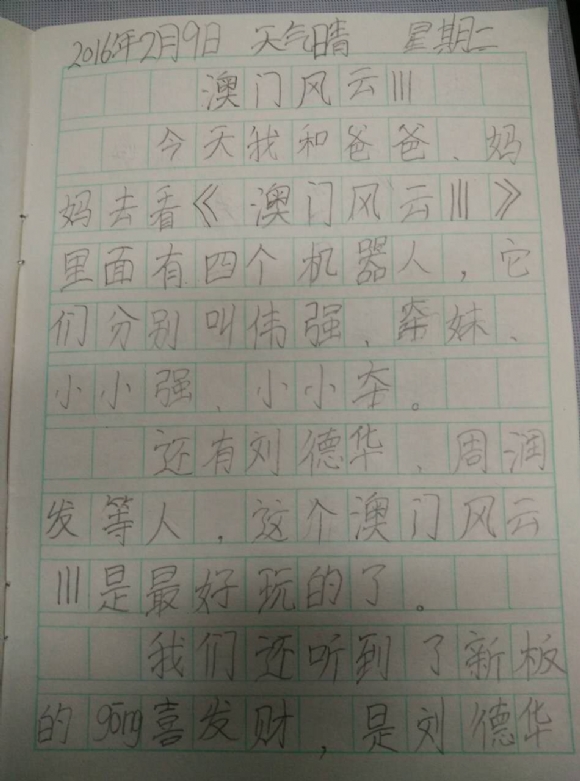 2016年2月9日 天气晴 星期二
澳门风云III
今天我和爸爸、妈
妈去看《澳门风云III》
里面有四个机器人，它
们分别叫伟强、妹、
小小强、小小。
还有刘德华、周润
发等人，这个澳门风云
III是最好玩的了。
我们还听到了新板
的gōng喜发财，是刘德华